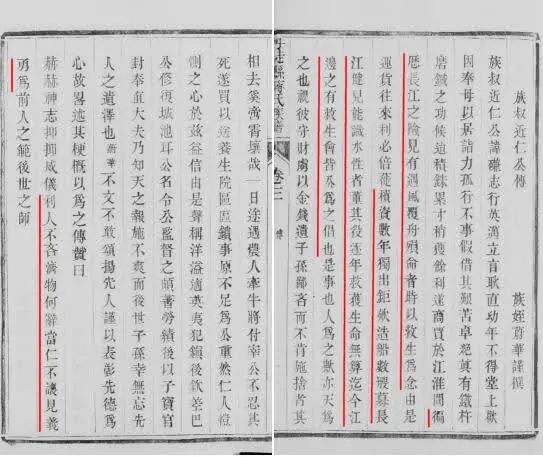 族叔近仁公傳
族姪蔚華謹撰
族叔近仁公諱志行英邁立言耿直幼年不得堂上歡
因奉母以居力孤行不事假借其艱苦卓絕真有鐵杵
磨鍼之功候迨積銖累寸稍獲餘利遂商賈於江淮間徧
歷長江之險見有遇風覆舟殞命者時以救生為念由是
運貨往來利必倍蓰積資數年獨出鉅欵造船數艘募長
江健兒能識水性者董其役逐年救獲生命無算迄今江
邊之有救生會皆公為之倡也是事也人為之歟亦天為
之也視彼守財虜以金錢遺子孫鄙吝而不肯施捨者其
卷三
傳
相去奚啻霄壤哉一日途遇農人牽牛將付宰公不忍其
死遂買以送養生院區區鎖事原不足為公重然仁人
惻之心於茲益信由是聲稱洋溢適英夷犯鎮後欽差巴
公修復城池耳公名令公監督之頗著勞績後以子寶官
封奉直大夫乃知天之報施不爽而後世子孫幸無忘先
人之遺澤也蔚華不文不敢頌揚先人謹以表彰先德為
心故畧述其梗概以為之傳贊曰
赫赫神志抑抑威儀利人不吝濟物何辭當仁不讓見義
勇為前人之範後世之師